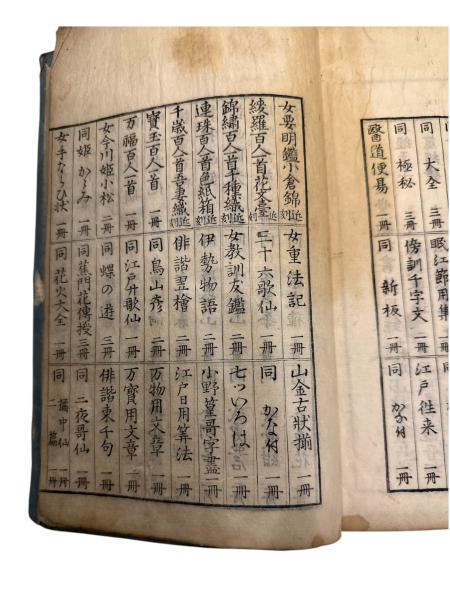 大全 三冊
同 極秘 三冊
醫道便易 一冊
眠江節用集 一冊
傍訓千字文 一冊
同 新板 一冊
江戸徃来 一冊
同 かな付 一冊
女要明鑑小倉錦 近刻
綾羅百人首花文臺 近刻
錦繍百人首千種織 近刻
連珠百人首色紙箱 近刻
千歳百人首吾妻織 近刻
寳玉百人一首 一冊
万福百人一首 一冊
女今川姫小松 二冊
同 姫かゞみ 一冊
女手ならひ状 一冊
女重法記 一冊
三十六歌仙 一冊
女教訓友鑑 一冊
伊勢物語 一冊
俳諧翌檜 一冊
同 鳥山彦 二冊
同 江戸廿歌仙 一冊
同 蝶の遊 三冊
同 蕉門花傳授 三冊
同 花火大全 一冊
山金古状揃 一冊
同 かな付 一冊
七ツいろは 一冊
小野篁哥字盡 一冊
江戸日用算法 一冊
万物用文章 一冊
万寳用文章 二冊
俳諧東千句 一冊
同 二夜哥仙 一冊
同 橘中仙 一冊
二篇 一冊